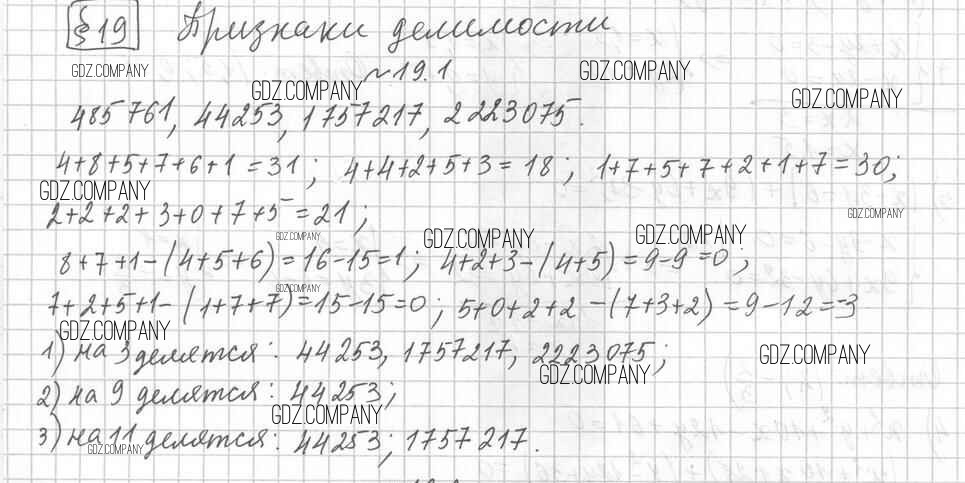 § 19 Признаки делимости
GDZ.COMPANY
~19.1
GDZ.COMPANY
GDZ.COMPANY
GDZ.COMPANY
485761, 44253, 1757217, 2223075.
4+8+5+7+6+1 = 31; 4+4+2+5+3 = 18; 1+7+5+7+2+1+7 = 30;
GDZ.COMPANY
2+2+2+3+0+7+5 = 21;
GDZ.COMPANY
GDZ.COMPANY
GDZ.COMPANY
GDZ.COMPANY
8+7+1-(4+5+6) = 16-15=1; 4+2+3-(4+5) = 9-9=0;
GDZ.COMPANY
7+2+5+1-(1+7+7)=15-15=0; 5+0+2+2-(7+3+2) = 9-12=-3
GDZ.COMPANY
1) на 3 делятся: 44253, 1757217, 2223075;
GDZ.COMPANY
GDZ.COMPANY
2) на 9 делятся: 44253;
GDZ.COMPANY
3) на 11 делятся: 44253; 1757217.
GDZ.COMPANY